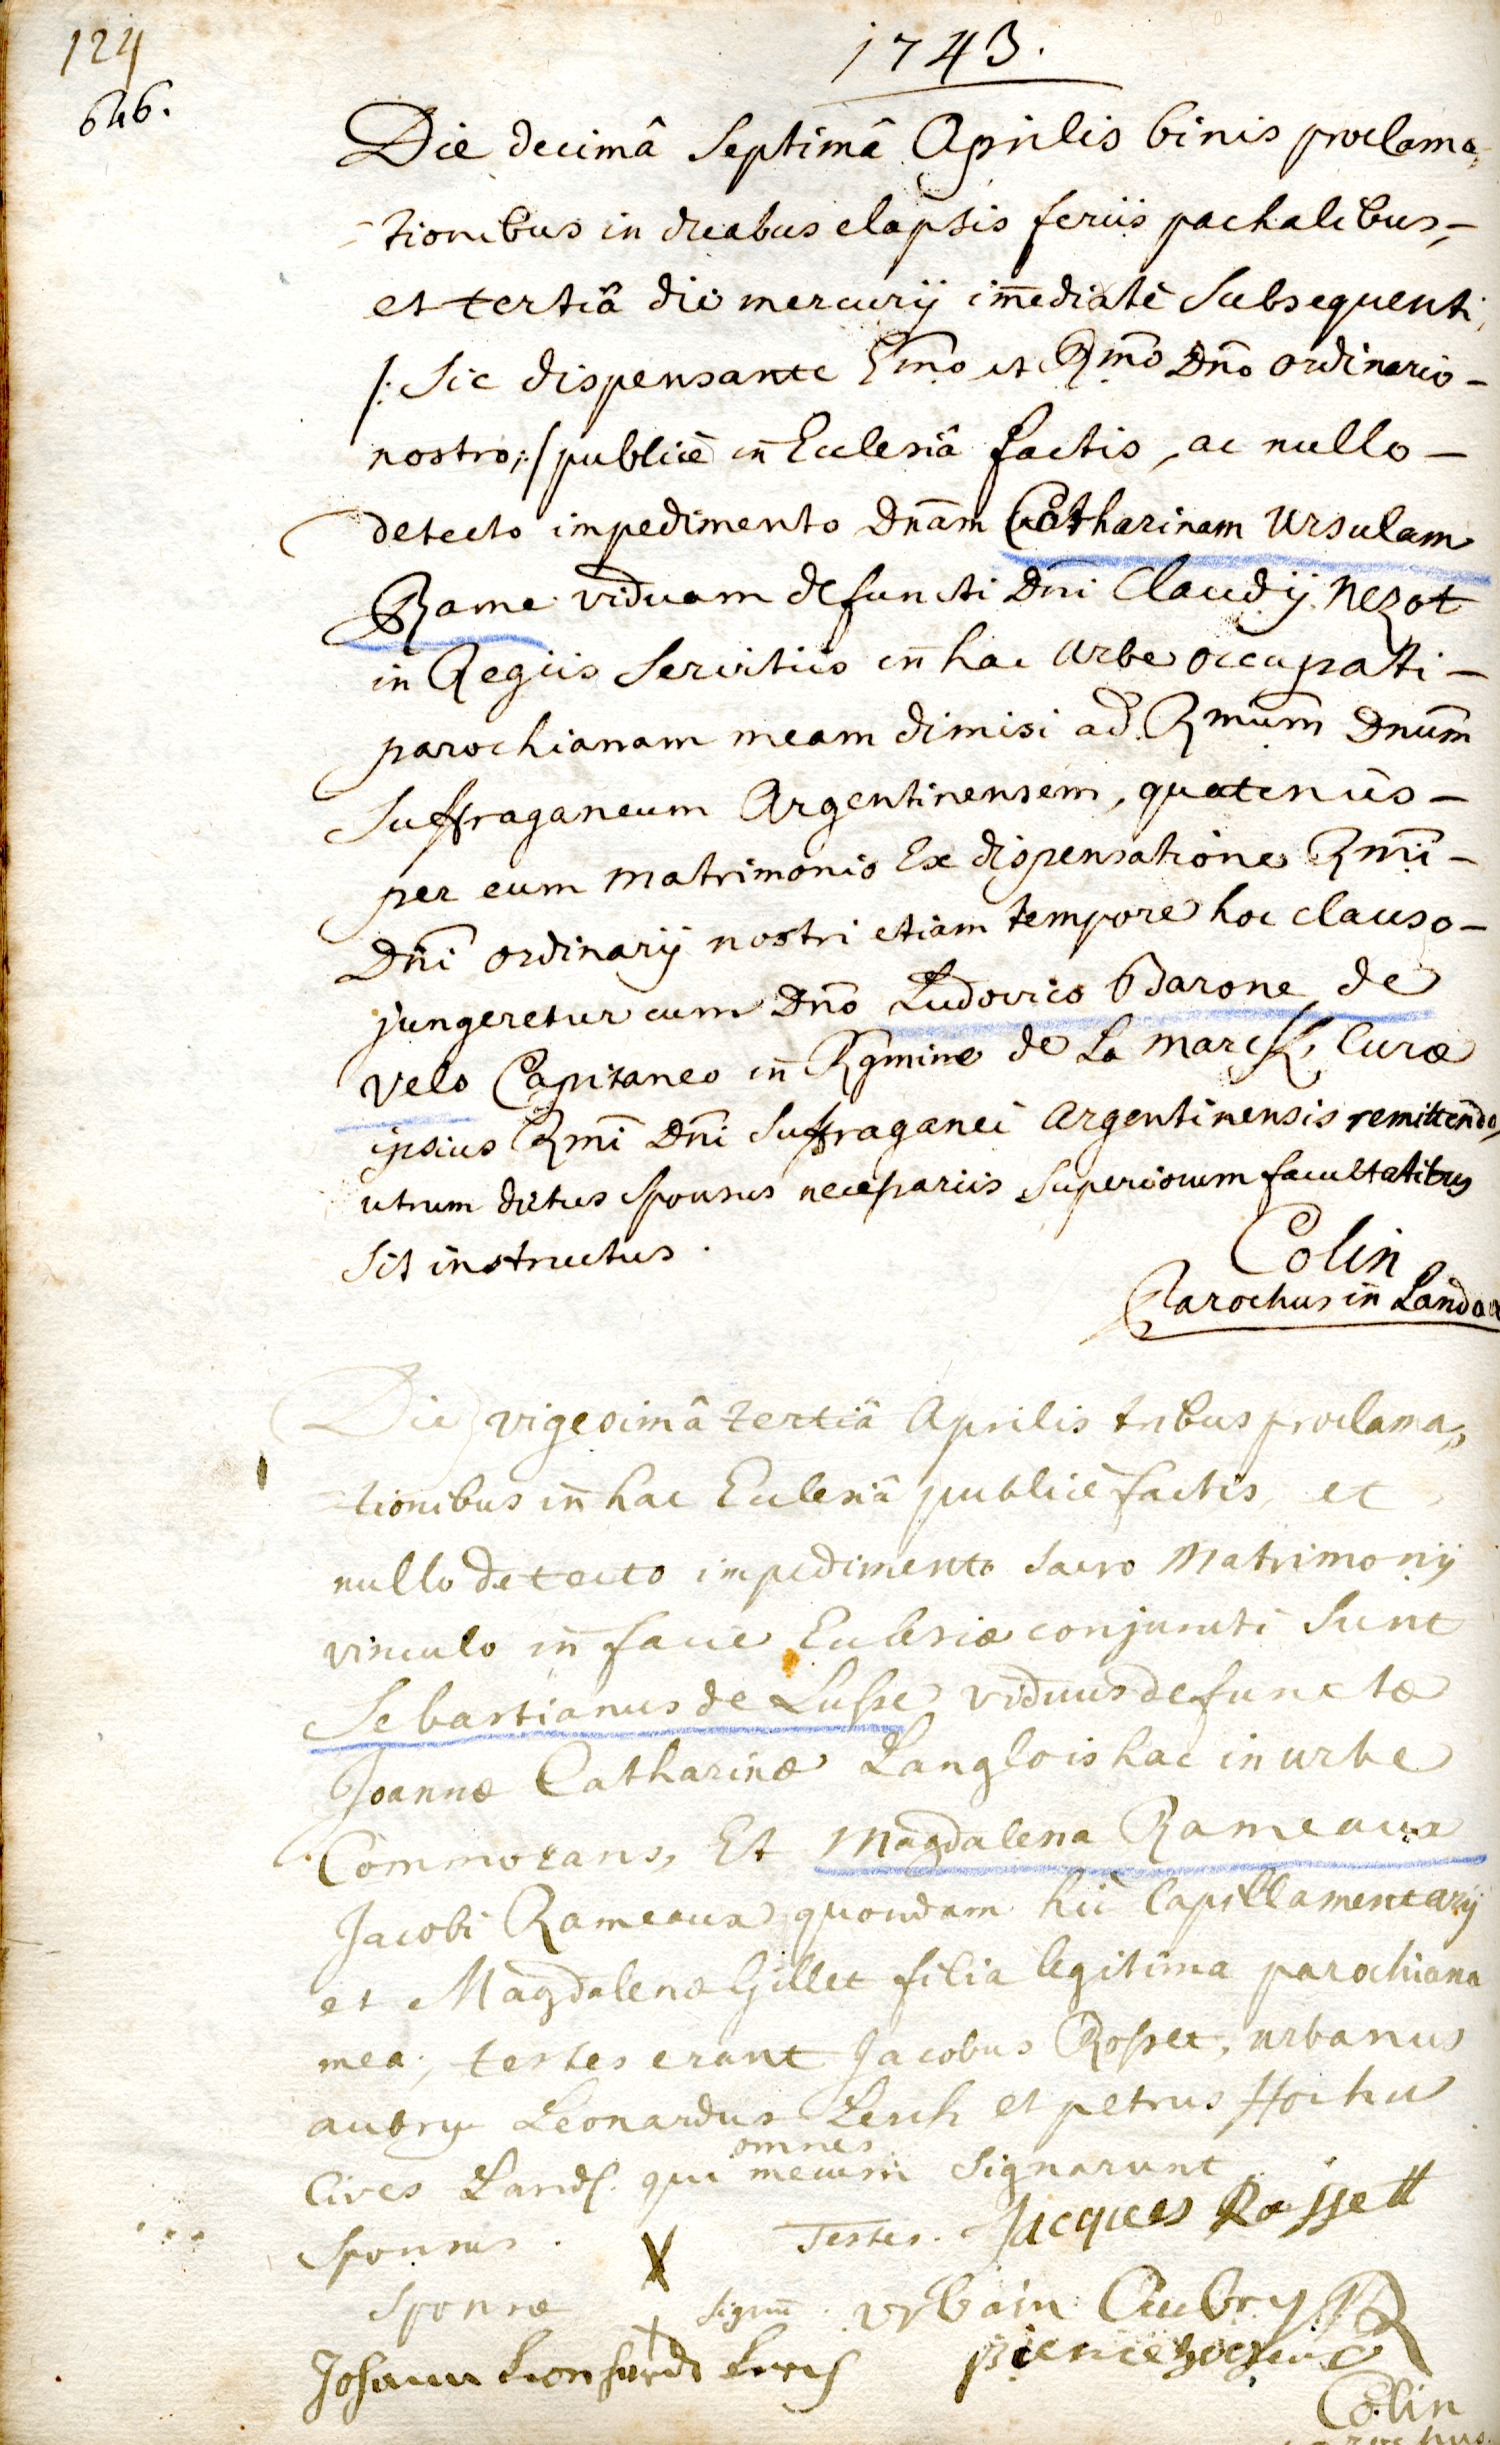 124
646.
1743.
Die decimâ Septimâ Aprilis binis proclama,
=tionibus in duabus elapsis feriis pachalibus,-
et tertiâ die mercurÿ im̄ediatè Subsequenti,
/: Sic dispensante Em̄o et Rm̄o Dn̄o ordinario -
nostro, :/ publicè in Ecclesiâ factis, ac nullo -
detecto impedimento Dn̄am Catharinam Ursulam
Rame viduam defuncti Dni Claudÿ Nezot
in Regiis Servitiis in hac Urbe occupati -
parochianam meam dimisi ad Rmum̄ Dnum̄
Suffraganeum Argentinensem, quatenus -
per eum Matrimonio Ex dispensatione Rmi -
Dn̄i ordinarÿ nostri etiam tempore hoc clauso -
jungeretur cum Dn̄o Ludovico Barone de
Velo Capitaneo in Rgmine de La Marck, Curæ
ipsius Rmi Dn̄i Suffraganei Argentinensis remittendo,
utrum dictus Sponsus necessariis Superiorum facultatibus
Sit instructus.
Colin
Parochus in Landau
Die vigesimâ tertiâ Aprilis tribus proclama,,
=tionibus in hac Ecclesiâ publicè factis, et
nullo detecto impedimento Sacro Matrimonÿ
vinculo in facie Ecclesiæ conjuncti Sunt
Sebastianus de Lusse viduus defunctæ
Joannæ Catharinæ Langlois hac in urbe
Commorans, Et Magdalena Rameaux
Jacobi Rameaux quondam hic Capillamentarÿ
et Magdalenæ Gillet filia legitima parochiana
mea; testes erant Jacobus Rosset, urbanus
aubry Leonardus Lerch et petrus Hochu
Cives Land. qui omnes mecum Signarunt
Sponsus. X Testes. Jacques Rossett
Sponsæ X Signu᷈. vrbain Aubry
Johann Leonhardt Lerch pierre hochu
Colin